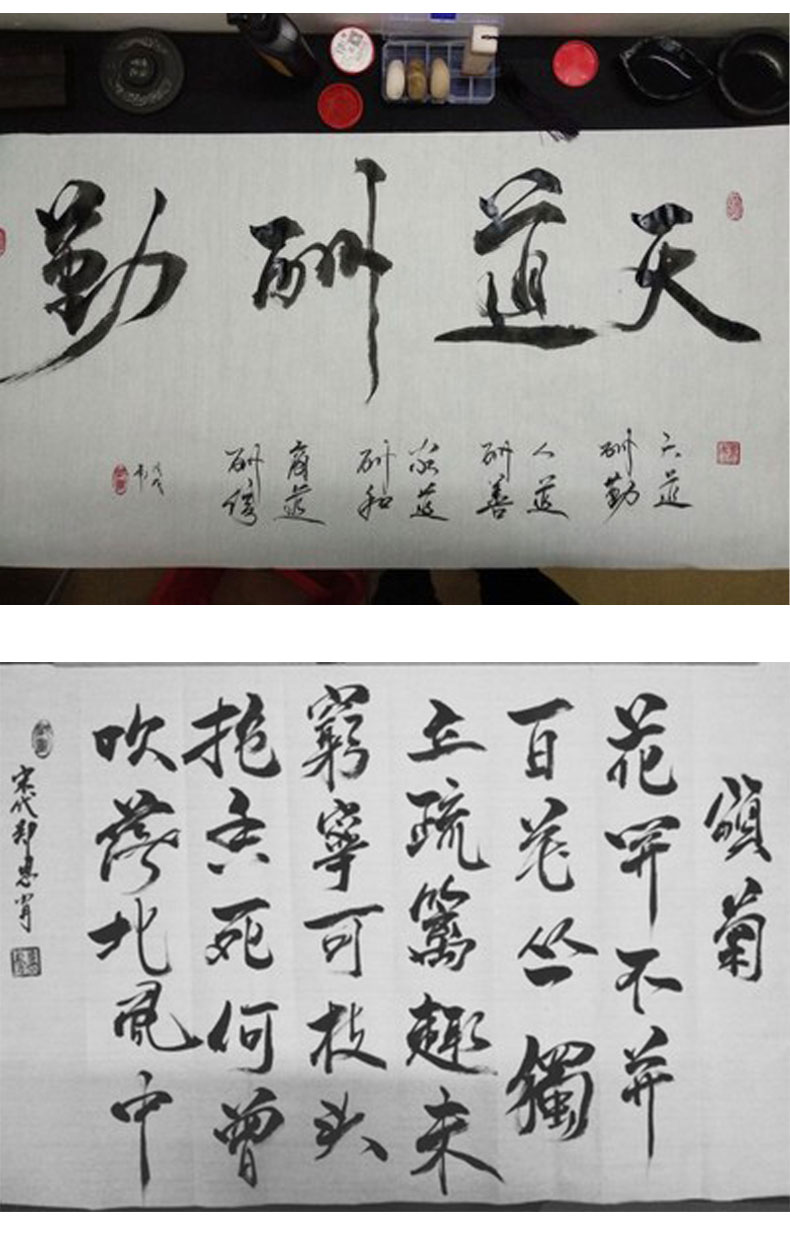 天道酬勤
天道
酬勤
人道
酬善
商道
酬信
頌菊
花開不并
百花丛獨
立疏篱趣未
窮寧可枝头
抱香死何曾
吹落北风中
宋代郑思肖